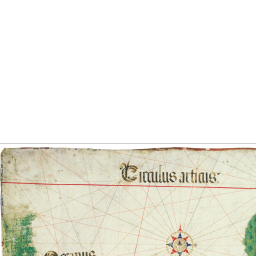 Circulus articus:
Oceanus